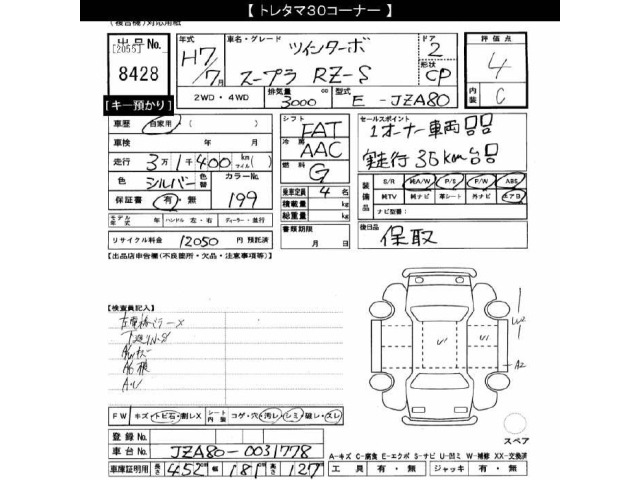 【 トレタマ30コーナー 】
(複合機)対応用紙
出品No. [2055] 8428
年式 H7/7月
車名・グレード ツインターボ
スープラ RZ-S
ドア 2
形状 CP
評価点 4
内装 C
[キー預かり]
2WD・4WD
排気量 3000 cc
型式 E-JZA80
車歴 自家用 ( )
車検 年 月
走行 3万1千400 km(マイル) ( )
色 シルバー 色替
カラーNo. 199
保証書 有・無
モデル年式 年 ハンドル 左・右 ディーラー・並行
リサイクル料金 12050 円 預託済
シフト FAT
冷房 AAC
燃料 G
乗車定員 4 名
積載量 kg
総重量 kg
書類期限 月 日
セールスポイント
1オーナー車両
実走行 3
装備品 S/R 純A/W P/S P/W ABS
純TV 純ナビ 革シート 外ナビ エアB
ナビ型番:
後日品 保取
【出品店申告欄(不良箇所・欠品・注意事項等)】
【検査員記入】
A2
FW キズ・トビ石・割レX
シート内装 コゲ・穴・汚レ・シミ・破レ・スレ
スペア
登録No.
車台No. JZA80-0031778
車庫証明用 長さ 452 cm 幅 181 cm 高さ 127 cm
A-キズ C-腐食 E-エクボ S-サビ U-凹ミ W-補修 XX-交換済
工具 有・無 ジャッキ 有・無